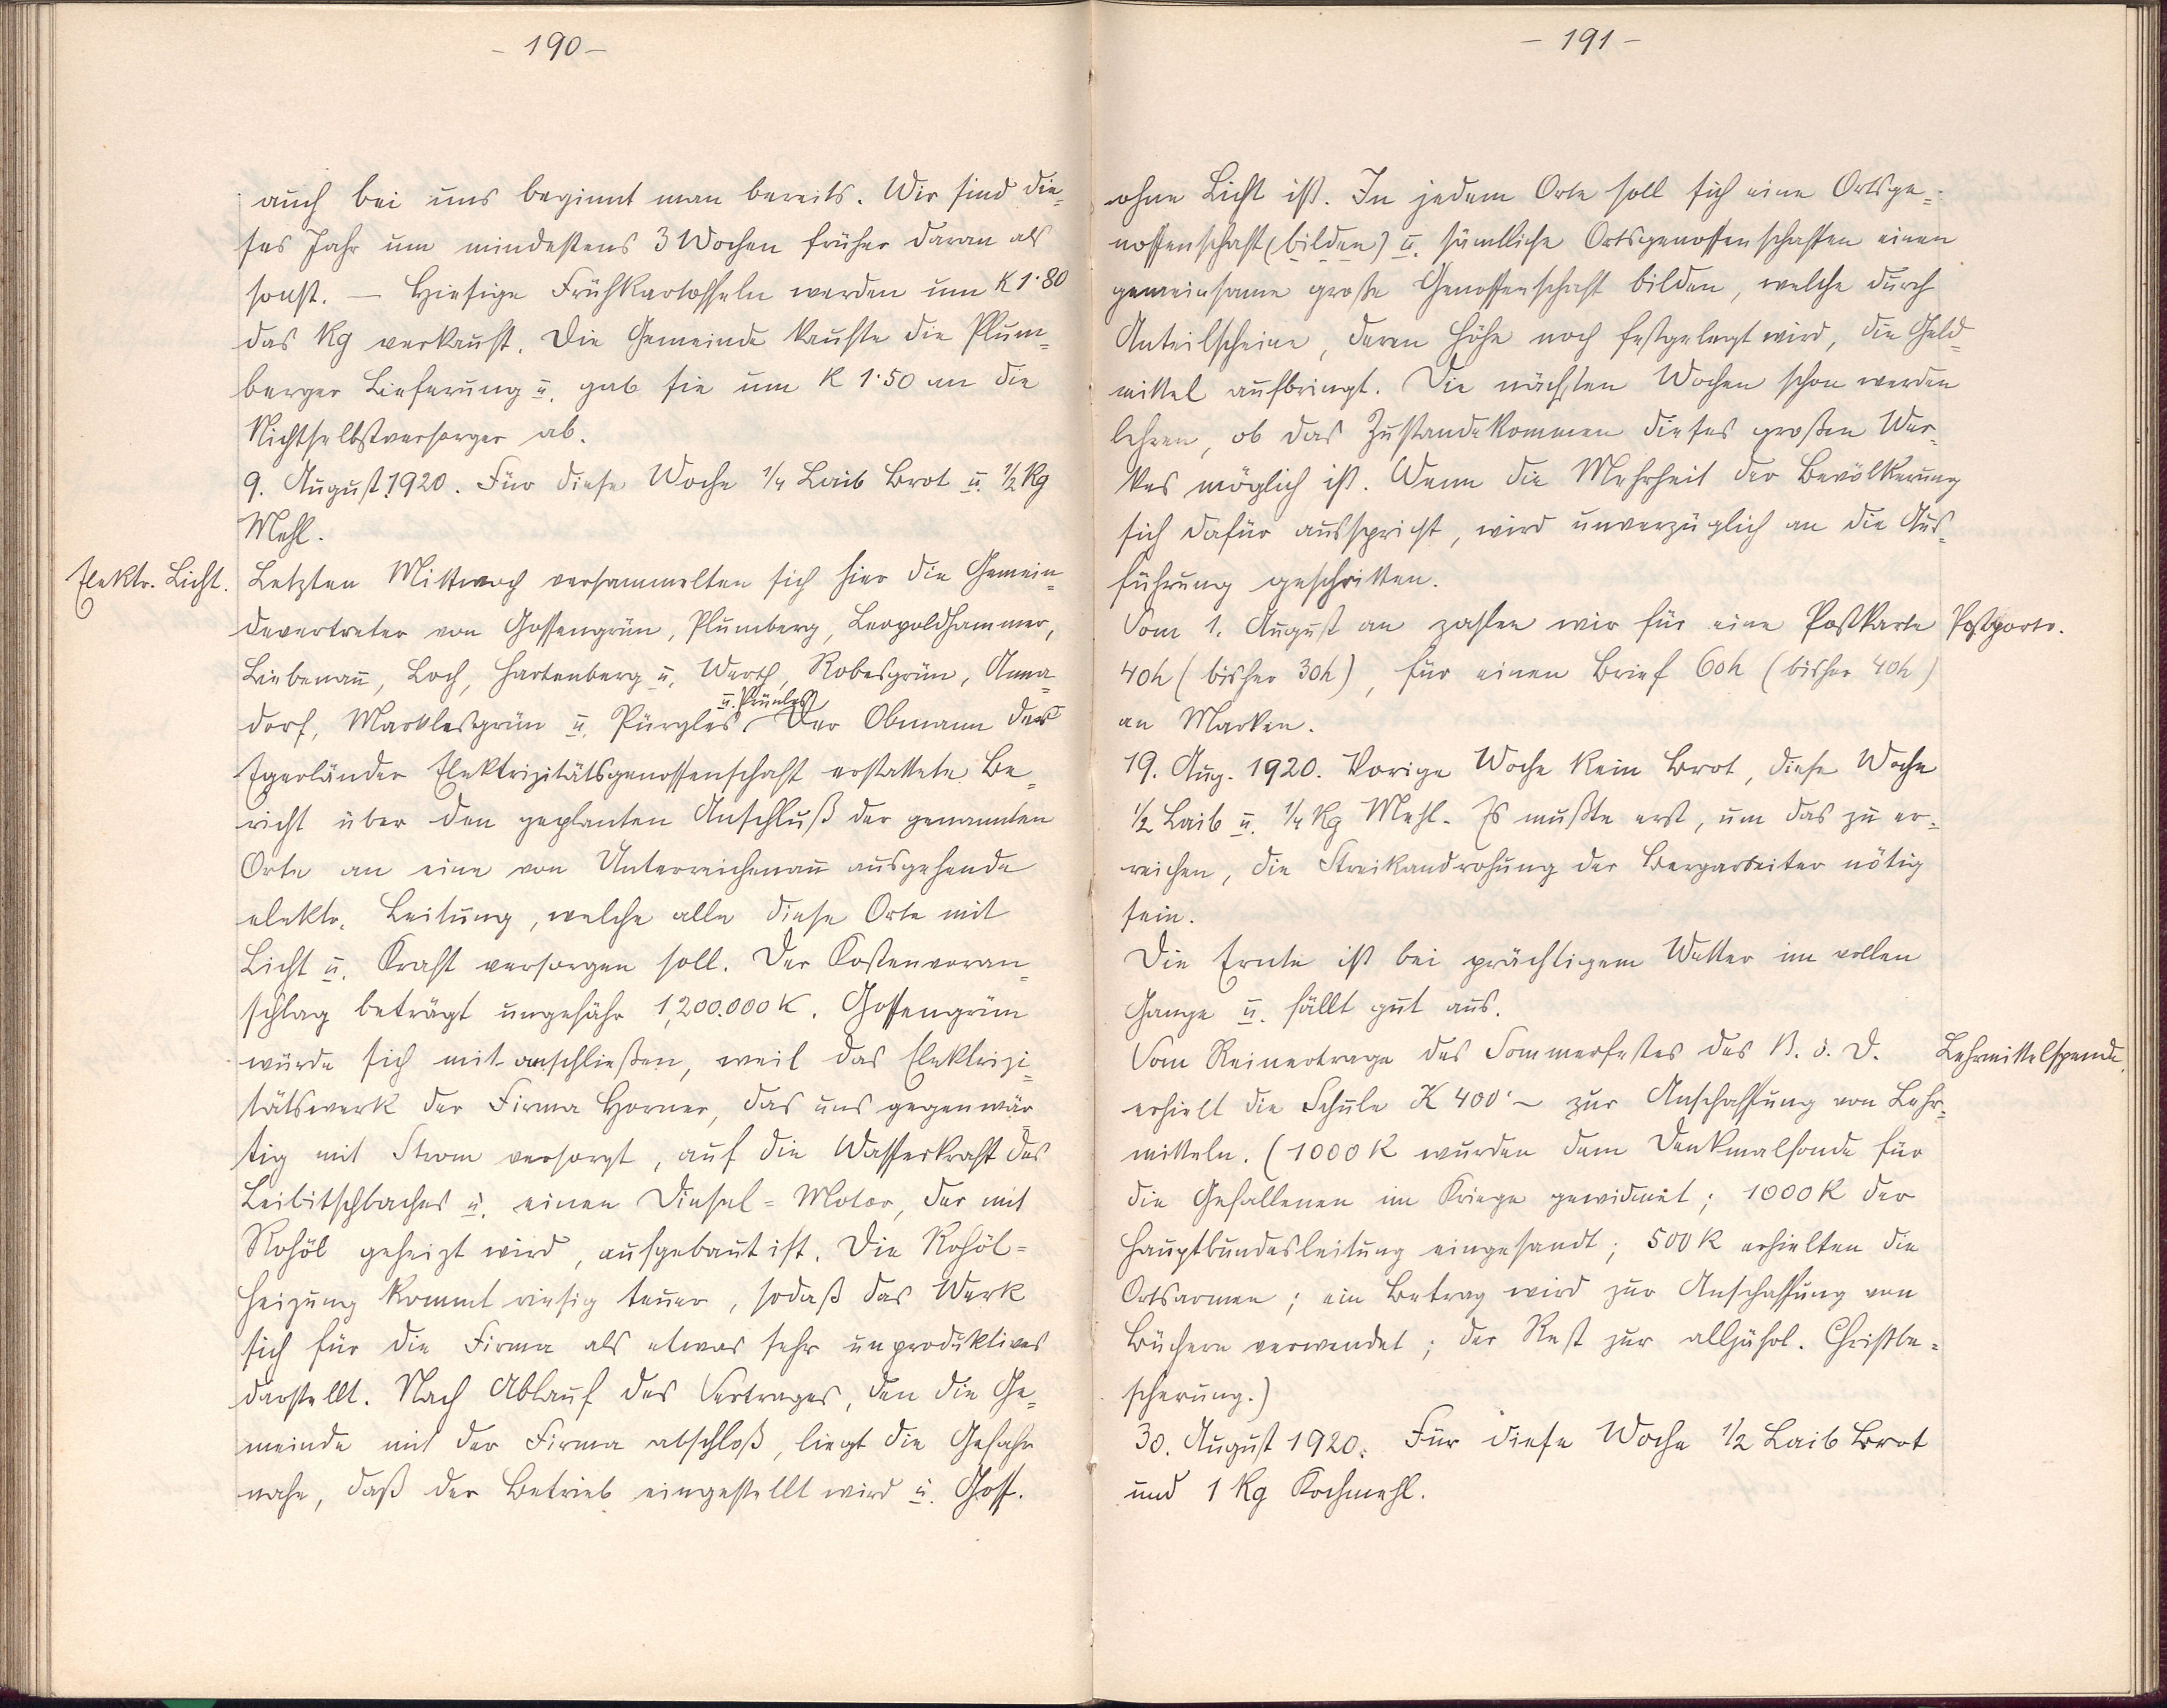 - 190 -
auch bei uns beginnt man bereits. Wir sind die=
ses Jahr um mindestens 3 Wochen früher daran als
sonst. — Hiesige Frühkartoffeln werden um K 1·80
das Kg verkauft. Die Gemeinde kaufte die Plum=
berger Lieferung u. gab sie um K 1·50 an die
Nichtselbstversorger ab.
9. August 1920. Für diese Woche 1/4 Laib Brot u. 1/2 Kg
Mehl.
Elektr. Licht.
Letzten Mittwoch versammelten sich hier die Gemein=
devertreter von Gossengrün, Plumberg, Leopoldhammer,
Liebenau, Loch, Hartenberg u. Werth, Robesgrün, Anna=
dorf, Marklesgrün u. Pürgles u. Prünles. Der Obmann der
Egerländer Elektrizitätsgenossenschaft erstattete Be=
richt über den geplanten Anschluß der genannten
Orte an eine von Unterreichenau ausgehende
elektr. Leitung, welche alle diese Orte mit
Licht u. Kraft versorgen soll. Der Kostenvoran=
schlag beträgt ungefähr 1,200.000 K. Gossengrün
würde sich mit anschließen, weil das Elektrizi=
tätswerk der Firma Horner, das uns gegenwär=
tig mit Strom versorgt, auf die Wasserkraft des
Leibitschbaches u. einen Diesel=Motor, der mit
Rohöl geheizt wird, aufgebaut ist. Die Rohöl=
heizung kommt riesig teuer, sodaß das Werk
sich für die Firma als etwas sehr unproduktives
darstellt. Nach Ablauf des Vertrages, den die Ge=
meinde mit der Firma abschloß, liegt die Gefahr
nahe, daß der Betrieb eingestellt wird u. Goss.
- 191 -
ohne Licht ist. In jedem Orte soll sich eine Ortsge=
nossenschaft (bilden) u. sämtliche Ortsgenossenschaften einen
gemeinsame große Genossenschaft bilden, welche durch
Anteilscheine, deren Höhe noch festgelegt wird, die Geld=
mittel aufbringt. Die nächsten Wochen schon werden
lehren, ob das Zustandekommen dieses großen Wer=
kes möglich ist. Wenn die Mehrheit der Bevölkerung
sich dafür ausspricht, wird unverzüglich an die Aus=
führung geschritten.
Vom 1. August an zahlen wir für eine Postkarte
Postporto.
40h (bisher 30h), für einen Brief 60h (bisher 40h)
an Marken.
19. Aug. 1920. Vorige Woche kein Brot, diese Woche
1/2 Laib u. 1/4 Kg Mehl. Es mußte erst, um das zu er=
reichen, die Streikandrohung der Bergarbeiter nötig
sein.
Die Ernte ist bei prächtigem Wetter im vollen
Gange u. fällt gut aus.
Vom Reinertrage des Sommerfestes des B. d. D.
Lehrmittelspende.
erhielt die Schule K 400·- zur Anschaffung von Lehr=
mitteln. (1000 K wurden dem Denkmalfonde für
die Gefallenen im Kriege gewidmet; 1000 K der
Hauptbundesleitung eingesandt; 500 K erhielten die
Ortsarmen; ein Betrag wird zur Anschaffung von
Büchern verwendet; der Rest zur alljährl. Christbe=
scherung.)
30. August 1920. Für diese Woche 1/2 Laib Brot
und 1 Kg Kochmehl.